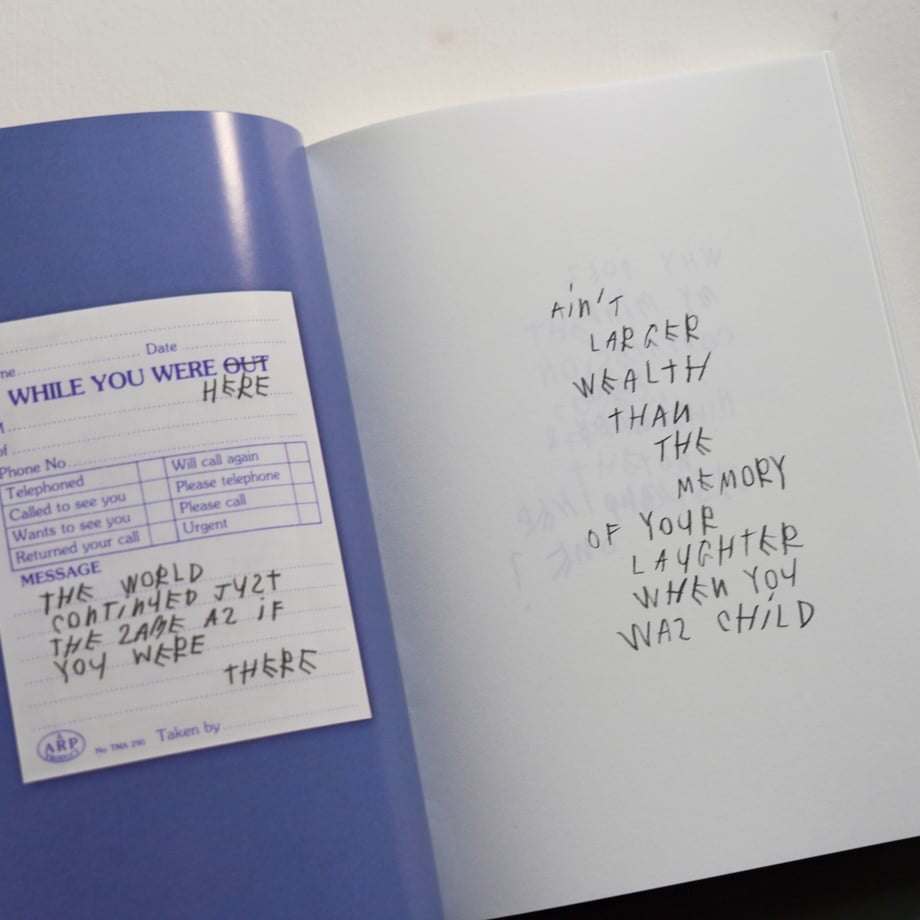 Date
WHILE YOU WERE OUT
HERE
of
Phone No
Telephoned
Will call again
Called to see you
Please telephone
Wants to see you
Please call
Returned your call
Urgent
MESSAGE
THE WORLD
CONTINUED JUST
THE SAME AS IF
YOU WERE
THERE
A
ARP
PRODUCT
No TMA 290
Taken by
AIN'T
LARGER
WEALTH
THAN
THE
MEMORY
OF YOUR
LAUGHTER
WHEN YOU
WAS CHILD